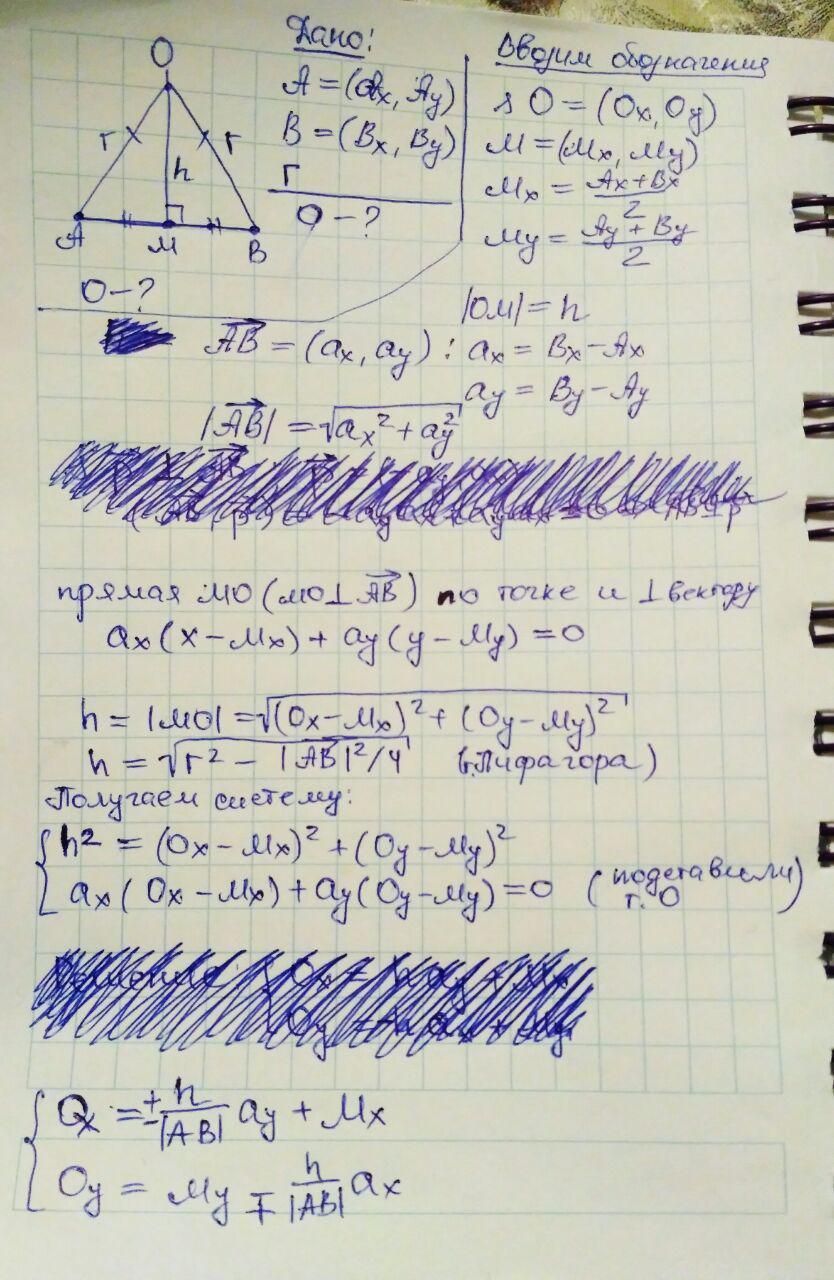 O
r
r
h
A
M
B
O-?
Дано:
A = (Ax, Ay)
B = (Bx, By)
r
O-?
Вводим обозначения
O = (Ox, Oy)
M = (Mx, My)
Mx = (Ax+Bx)/2
My = (Ay + By)/2
|OM| = h
AB = (ax, ay) : ax = Bx - Ax
ay = By - Ay
|AB| = √(ax² + ay²)
прямая MO (MO ⊥ AB) по точке и ⊥ вектору
ax(x - Mx) + ay(y - My) = 0
h = |MO| = √((Ox - Mx)² + (Oy - My)²)
h = √(r² - |AB|²/4) (т.Пифагора)
Получаем систему:
h² = (Ox - Mx)² + (Oy - My)²
ax(Ox - Mx) + ay(Oy - My) = 0 (подставили
т. O)
Ox = ± h/|AB| ay + Mx
Oy = My ∓ h/|AB| ax